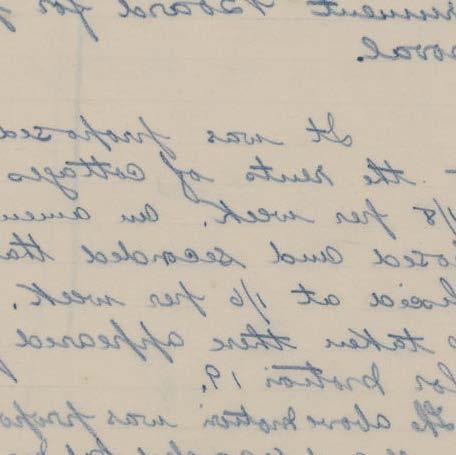 Board for
It was proposed
the rents of Cottages
1/8 per week. An amen
posed and seconded tha
fixed at 1/6 per week.
s taken there appeared
for motion 19.
The above motion was propo